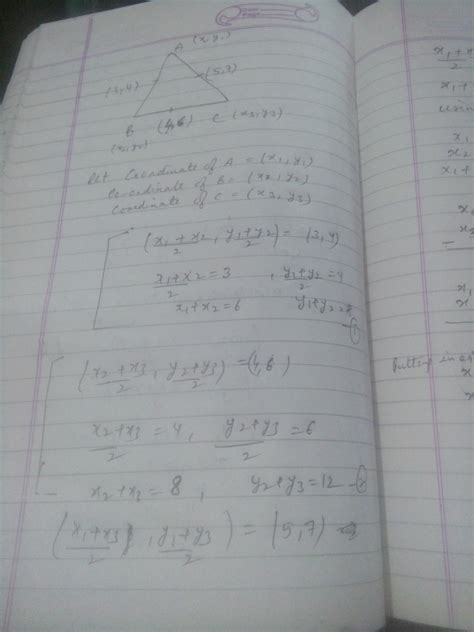 A (x1, y1)
(3,4) (5,7)
B (4,6) C (x3, y3)
(x2, y2)
Let Coordinate of A = (x1, y1)
Co-ordinate of B = (x2, y2)
Coordinate of C = (x3, y3)
(x1 + x2 / 2, y1 + y2 / 2) = (3, 4)
x1 + x2 / 2 = 3 , y1 + y2 / 2 = 4
x1 + x2 = 6 y1 + y2 =
(x2 + x3 / 2, y2 + y3 / 2) = (4, 6)
x2 + x3 / 2 = 4 , y2 + y3 / 2 = 6
x2 + x3 = 8 , y2 + y3 = 12
(x1 + x3 / 2 , y1 + y3 / 2) = (5, 7)
x1 +
2
x1 +
x1
x2
x1 +
x1
x
Putting in
x